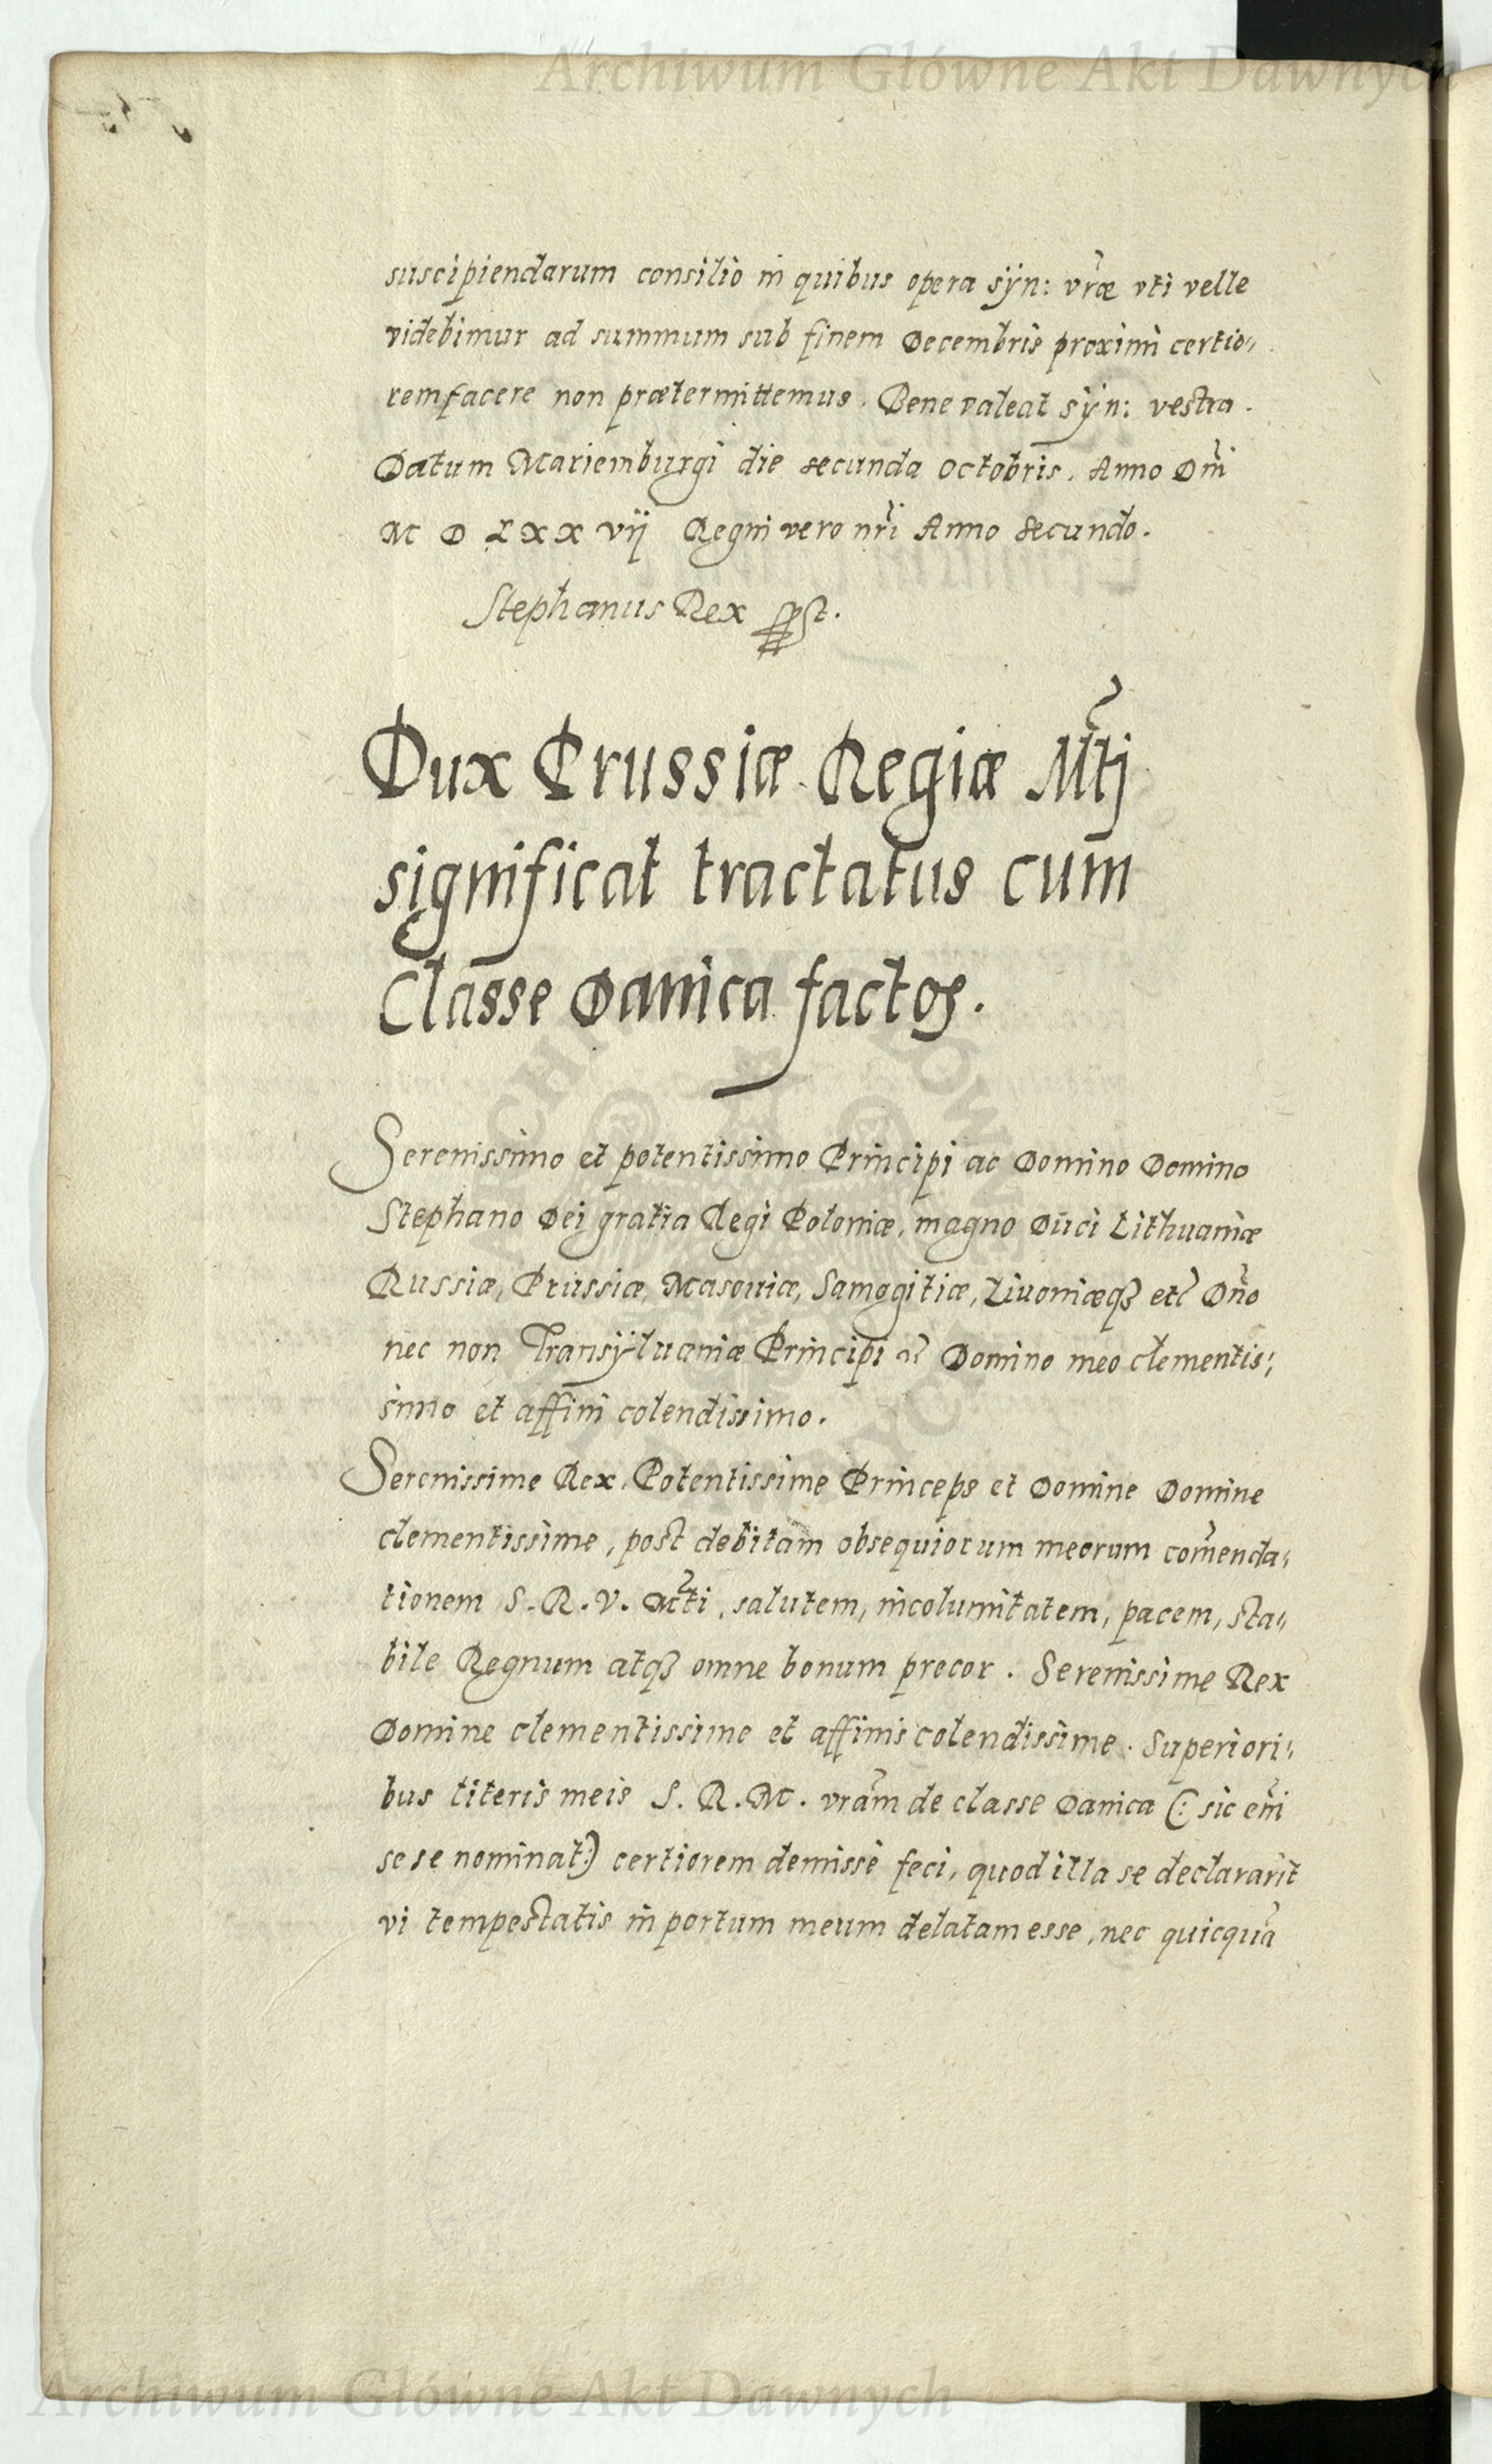 Archiwum Główne Akt Dawnych
suscipiendarum consilio in quibus opera syn: vræ vti velle
videbimur ad summum sub finem Decembris proximi certio„
rem facere non prætermittemus. Bene valeat syn: vestra.
Datum Mariemburgi die secunda Octobris. Anno Dni
M D LXX vij Regni vero nri Anno Secundo.
Stephanus Rex
Dux Prussiæ Regiæ Mti
significat tractatus cum
Classe Danica factos.
Serenissimo et potentissimo Principi ac Domino Domino
Stephano Dei gratia Regi Poloniæ, magno Duci Lithuaniæ
Russiæ, Prussiæ, Masouiæ, Samogitiæ, Liuoniæq3 etc Dno
nec non Transyluaniæ Principi Domino meo clementis„
simo et affini colendissimo.
Serenissime Rex, Potentissime Princeps et Domine Domine
clementissime, post debitam obsequiorum meorum comenda„
tionem S. R. V. Mti, salutem, incolumitatem, pacem, sta„
bile Regnum atq3 omne bonum precor. Serenissime Rex
Domine clementissime et affinis colendissime. Superiori„
bus literis meis S. R. M. vram de classe Danica (: sic eni
sese nominat:) certiorem demisse feci, quod illa se declararit
vi tempestatis in portum meum delatam esse, nec quicqua
Archiwum Główne Akt Dawnych